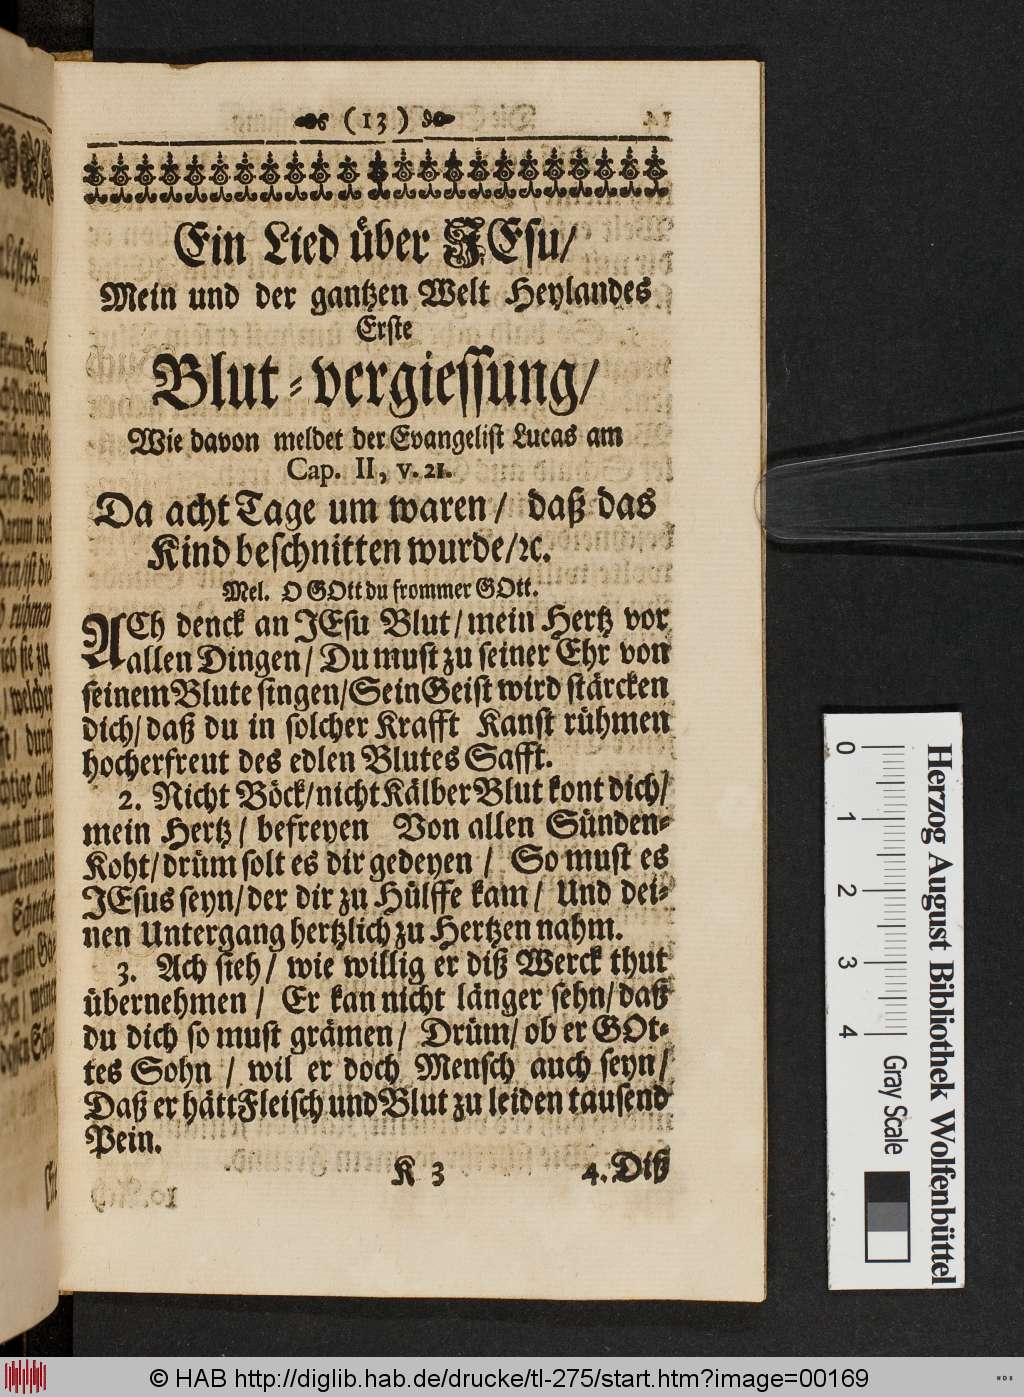 ( 13 )
Ein Lied über JEsu/
Mein und der gantzen Welt Heylandes
Erste
Blut-vergiessung/
Wie davon meldet der Evangelist Lucas am
Cap. II, v. 21.
Da acht Tage um waren/ daß das
Kind beschnitten wurde/ꝛc.
Mel. O GOtt du frommer GOtt.
ACh denck an JEsu Blut/mein Hertz vor
allen Dingen/ Du must zu seiner Ehr von
seinem Blute singen/Sein Geist wird stärcken
dich/ daß du in solcher Krafft Kanst rühmen
hocherfreut des edlen Blutes Safft.
2. Nicht Böck/nicht Kälber Blut kont dich/
mein Hertz/ befreyen Von allen Sünden-
Koht/drüm solt es dir gedeyen/ So must es
JEsus seyn/der dir zu Hülffe kam/ Und dei-
nen Untergang hertzlich zu Hertzen nahm.
3. Ach sieh/ wie willig er diß Werck thut
übernehmen/ Er kan nicht länger sehn/daß
du dich so must grämen/ Drüm/ ob er GOt-
tes Sohn/ wil er doch Mensch auch seyn/
Daß er hätt Fleisch und Blut zu leiden tausend
Pein.
K 3
4. Diß
0 1 2 3 4
Gray Scale
Herzog August Bibliothek Wolfenbüttel
© HAB http://diglib.hab.de/drucke/tl-275/start.htm?image=00169